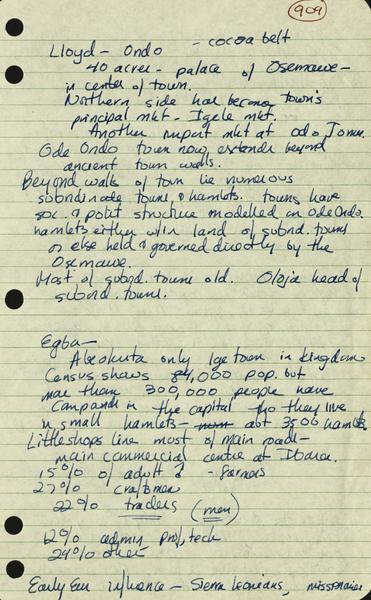 909
Lloyd - Ondo - cocoa belt
40 acres - palace of Osemawe -
in center of town.
Northern side has become town's
principal mkt - Igele mkt.
Another import mkt at Odo
Ode Ondo town now extends beyond
ancient town walls.
Beyond walls of town lie numerous
subordinate towns & hamlets. towns have
soc. & polit structure modelled on Ode Ondo.
hamlets either w/in land of subord. towns
or else held & governed directly by the
Osemawe.
Most of subord. towns old. Oloja head of
subord. towns.
Egba -
Abeokuta only lge town in kingdom
Census shows 84,000 pop. but
more than 300,000 people have
compounds in the capital tho they live
in small hamlets - abt 3500 hamlets
Little shops line most of main road -
main commercial centre at Ibara.
15% of adult ♂ - farmers
27% craftsmen
22% traders (men)
12% admin prof, tech
24% other
Early Eur influence - Sierra Leonians, missionaries